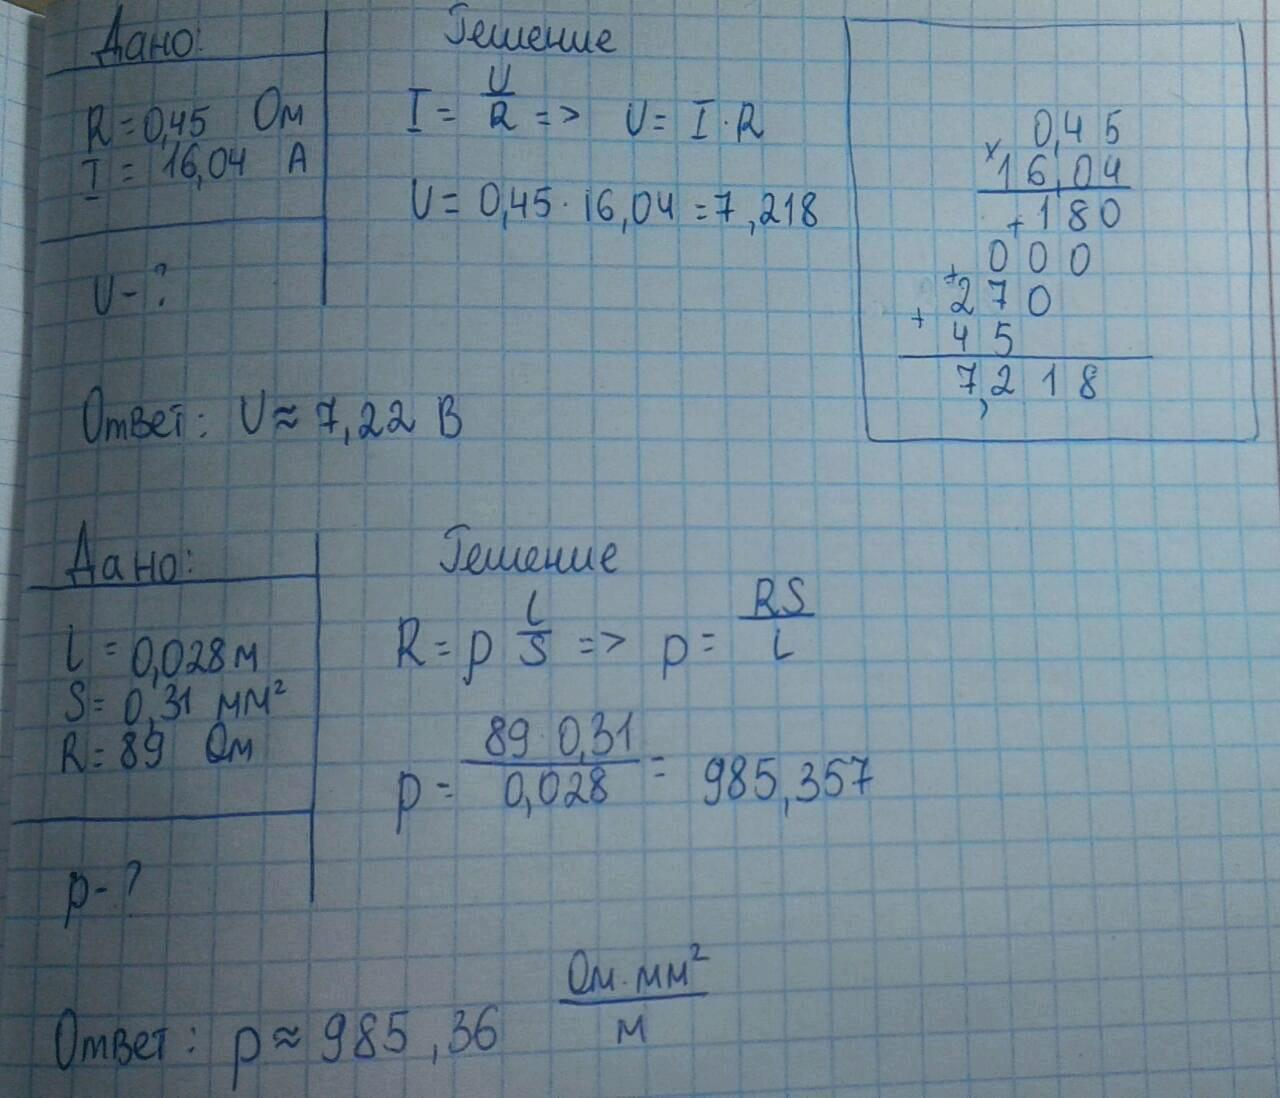 Дано:
R = 0,45 Ом
I = 16,04 А
U - ?
Решение
I = U/R => U = I · R
U = 0,45 · 16,04 = 7,218
0,45
× 16,04
+ 180
+ 000
+ 270
45
7,218
Ответ: U ≈ 7,22 В
Дано:
l = 0,028 м
S = 0,31 мм²
R = 89 Ом
p - ?
Решение
R = p l/S => p = RS/L
p = 89 · 0,31 / 0,028 = 985,357
Ответ: p ≈ 985,36 Ом · мм²/м